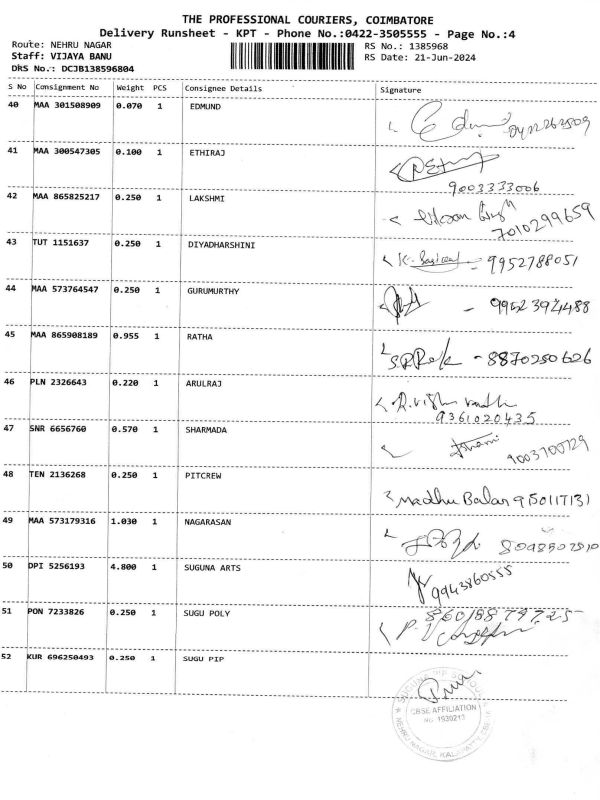 THE PROFESSIONAL COURIERS, COIMBATORE
Delivery Runsheet - KPT - Phone No.:0422-3505555 - Page No.:4
Route: NEHRU NAGAR RS No.: 1385968
Staff: VIJAYA BANU RS Date: 21-Jun-2024
DRS No.: DCJB138596804
S No Consignment No Weight PCS Consignee Details Signature
40 MAA 301508909 0.070 1 EDMUND
41 MAA 300547305 0.100 1 ETHIRAJ
9003333006
42 MAA 865825217 0.250 1 LAKSHMI
7010299659
43 TUT 1151637 0.250 1 DIYADHARSHINI - 9952788051
44 MAA 573764547 0.250 1 GURUMURTHY - 9952394488
45 MAA 865908189 0.955 1 RATHA - 8870250626
46 PLN 2326643 0.220 1 ARULRAJ
9361020435
47 SNR 6656760 0.570 1 SHARMADA
9003100729
48 TEN 2136268 0.250 1 PITCREW Madhu Balan 9150117131
49 MAA 573179316 1.030 1 NAGARASAN
50 DPI 5256193 4.800 1 SUGUNA ARTS 9943860555
51 PON 7233826 0.250 1 SUGU POLY
52 KUR 696250493 0.250 1 SUGU PIP
SUGUNA PIP SCHOOL
CBSE AFFILIATION
NO. 1930213
NEHRU NAGAR, KALAPATTI